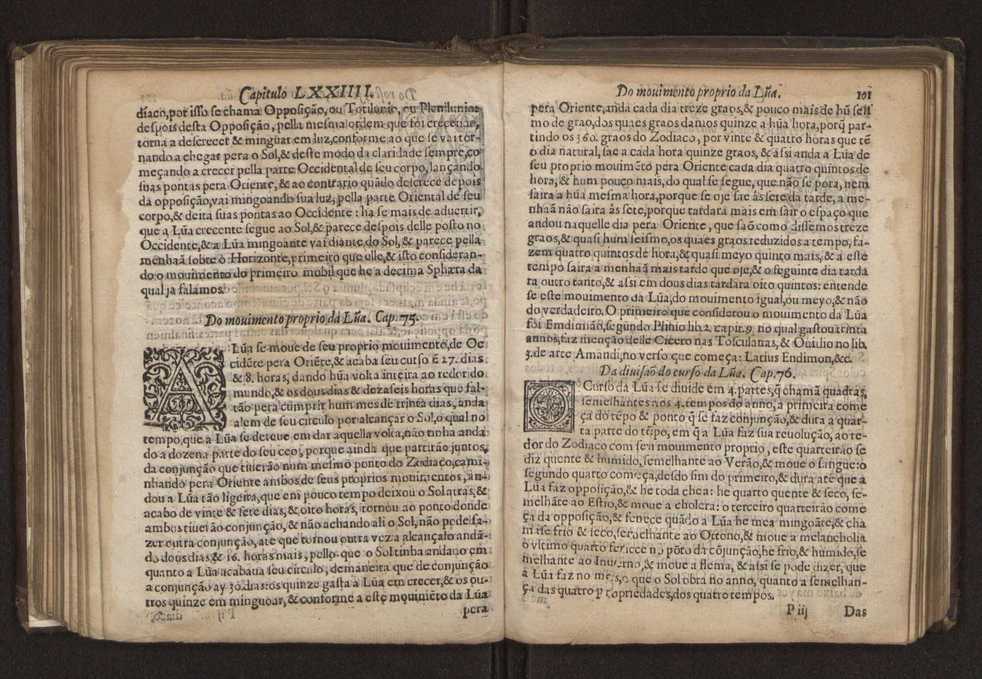 Capitulo LXXIIII.
diaco, por isso se chama Opposição, ou Totilunio, ou Plenilunio:
despois desta Opposição, pella mesma ordem que foi crecendo,
torna a descrecer & minguar em luz, conforme ao que se vai tor-
nando a chegar pera o Sol, & deste modo da claridade sempre, co
meçando a crecer pella parte Occidental de seu corpo, lançando
suas pontas pera Oriente, & ao contrario quãdo descrece depois
da opposição, vai mingoando sua luz, pella parte Oriental de seu
corpo, & deita suas pontas ao Occidente: ha se mais de aduertir,
que a Lũa crecente segue ao Sol, & parece despois delle posto no
Occidente, & a Lũa mingoante vai diante do Sol, & parece pella
menhaã sobre o Horizonte, primeiro que elle, & isto consideran-
do o mouimento do primeiro mobil que he a decima Sphæra da
qual ja falamos.
Do mouimento proprio da Lũa. Cap. 75.
A Lũa se moue de seu proprio mouimento, de Oc
cidẽte pera Oriẽte, & acaba seu curso ẽ 27. dias
& 8. horas, dando hũa volta inteira ao redor do
mundo, & os dous dias & dozaseis horas que fal-
tão pera cumprir hum mes de trinta dias, anda
alem de seu circulo por alcançar o Sol, o qual no
tempo, que a Lũa se deteue em dar aquella volta, não tinha anda
do a dozena parte do seu ceo, porque ainda que partirão juntos
da conjunção que tiuerão num mesmo ponto do Zodiaco, cami-
nhando pera Oriente ambos de seus proprios mouimentos, an-
dou a Lũa tão ligeira, que em pouco tempo deixou o Sol atras, &
acabo de vinte & sete dias, & oito horas, tornou ao ponto donde
ambos tiuerão conjunção, & não achando ali o Sol, não pede fa-
zer outra conjunção, ate que tornou outra vez a alcançalo andã-
do dous dias & 16. horas mais, pello que o Sol tinha andado em
quanto a Lũa acabaua seu circulo, demaneira que de conjunção
a conjunção ay 30. dias: os quinze gasta a Lũa em crecer, & os ou-
tros quinze em minguoar, & conforme a este mouimẽto da Lũa
pera
Do mouimento proprio da Lũa. 101
pera Oriente, anda cada dia treze graos, & pouco mais de hũ sesi
mo de grao, dos quaes graos damos quinze a hũa hora, porq̃ par-
tindo os 360. graos do Zodiaco, por vinte & quatro horas que tẽ
o dia natural, sae a cada hora quinze graos, & assi anda a Lũa de
seu proprio mouimẽto pera Oriente cada dia quatro quintos de
hora, & hum pouco mais, do qual se segue, que não se pora, nem
saira a hũa mesma hora, porque se oje sae às sete da tarde, a me-
nhaã não saira às sete, porque tardarà mais em sair o espaço que
andou naquelle dia pera Oriente, que saõ como dissemos treze
graos, & quasi hum seismo, os quaes graos reduzidos a tempo, fa-
zem quatro quintos de hora, & quasi meyo quinto mais, & a este
tempo saira a menhaã mais tarde que oje, & o seguinte dia tardà
ra outro tanto, & assi em dous dias tardàra oito quintos: entende
se este mouimento da Lũa, do mouimento igual, ou meyo, & não
do verdadeiro. O primeiro que considerou o mouimento da Lũa
foi Emdimiaõ, segundo Plinio lib. 2. capit. 9. no qual gastou trinta
annos, faz menção delle Cicero nas Tosculanas, & Ouidio no lib.
3. de arte Amandi, no verso que começa: Latius Endimon, &c.
Da diuisaõ do curso da Lũa. Cap. 76.
O Curso da Lũa se diuide em 4. partes, q̃ chamã quadras,
semelhantes aos 4. tempos do anno, a primeira come
ça do tẽpo & ponto q̃ se faz conjunção, & dura a quar-
ta parte do tẽpo, em q̃ a Lũa faz sua reuolução, ao re-
dor do Zodiaco com seu mouimento proprio, este quarteirão se
diz quente & humido, semelhante ao Verão, & moue o sangue: o
segundo quarto começa, desdo fim do primeiro, & dura ate que a
Lũa faz opposição, & he toda chea: he quarto quente & seco, se-
melhãte ao Estio, & moue a cholera: o terceiro quarteirão come
ça da opposição, & fenece quãdo a Lũa he mea mingoãte, & cha
mase frio & seco, semelhante ao Ottono, & moue a melancholia
o vltimo quarto fenece no põto da cõjunção, he frio, & humido, se
melhante ao Inuerno, & moue a flema, & assi se pode dizer, que
a Lũa faz no mes, o que o Sol obra no anno, quanto a semelhan-
ça das quatro propriedades, dos quatro tempos.
P iij Das